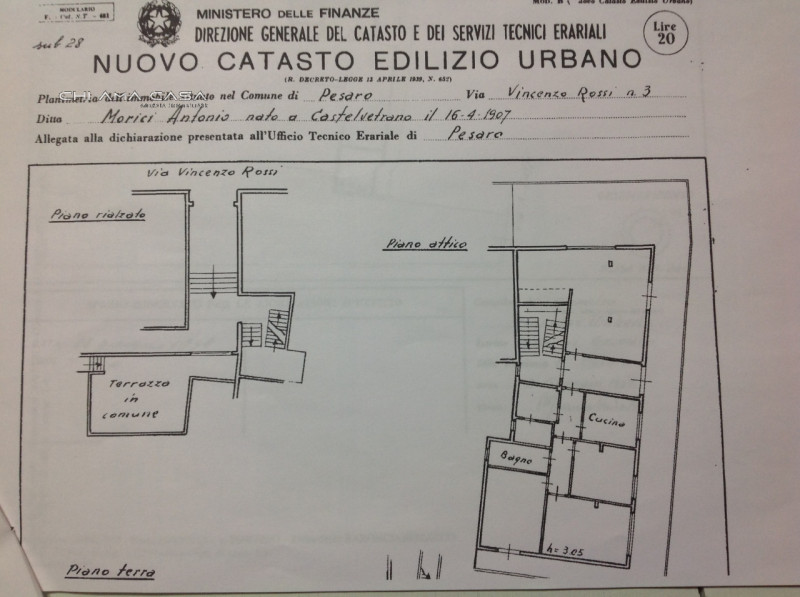 MODULARIO
F. - Cat. S.T - 681
sub 28
MINISTERO DELLE FINANZE
DIREZIONE GENERALE DEL CATASTO E DEI SERVIZI TECNICI ERARIALI
Lire
20
NUOVO CATASTO EDILIZIO URBANO
(R. DECRETO-LEGGE 13 APRILE 1939, N. 652)
Planimetria dell'immobile situato nel Comune di Pesaro Via Vincenzo Rossi n. 3
Ditta Morici Antonio nato a Castelvetrano il 16-4-1907
Allegata alla dichiarazione presentata all'Ufficio Tecnico Erariale di Pesaro
Via Vincenzo Rossi
Piano rialzato
Piano attico
Terrazza
in
comune
Cucina
Bagno
h= 3.05
Piano terra